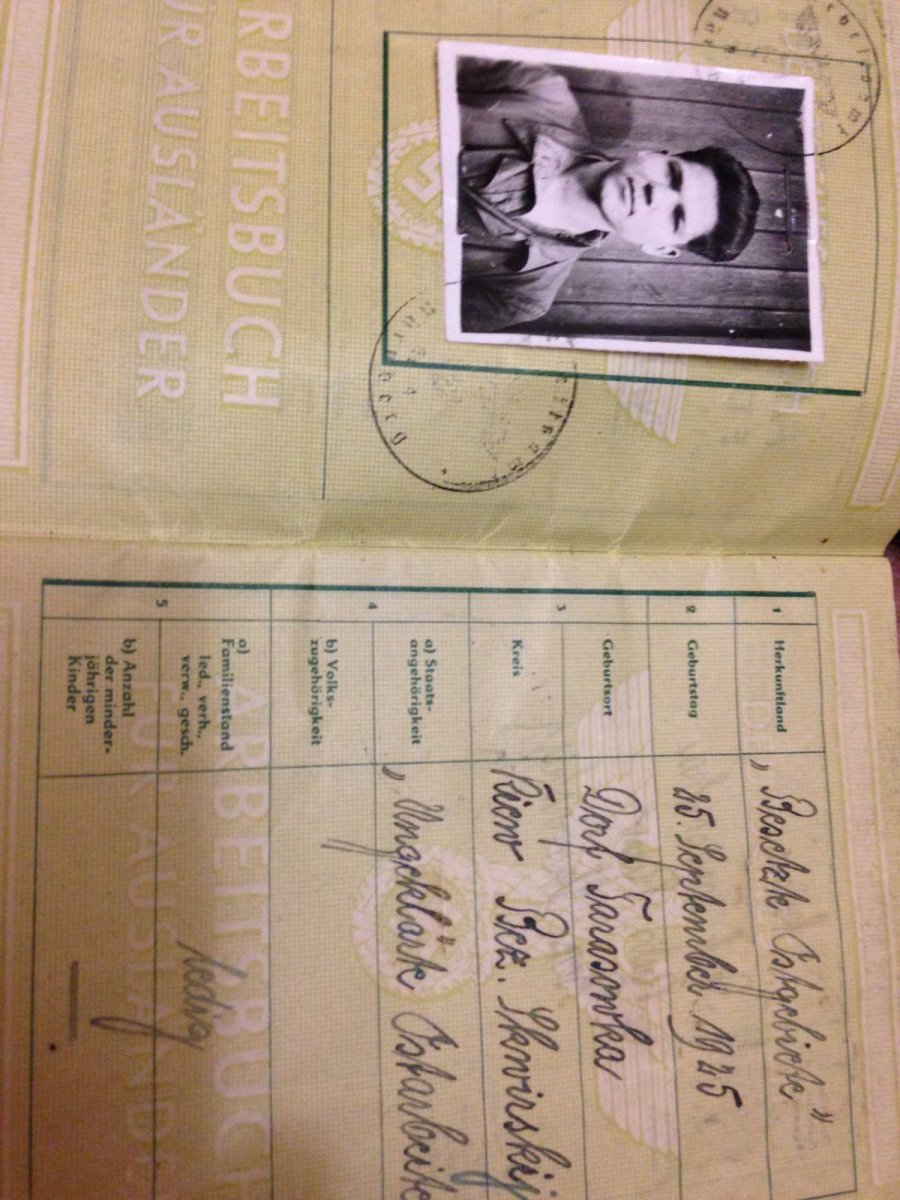 ARBEITSBUCH
FÜR AUSLÄNDER
1 Herkunftland „Besetzte Ostgebiete"
2 Geburtstag 25. September 1925
3 Geburtsort Dorf Tarasowka
Kreis Kiew Bez. Skwirskij
4 a) Staats-
angehörigkeit „Ungeklärt" Ostarbeite
b) Volks-
zugehörigkeit
5 a)
Familienstand
led., verh.,
verw., gesch. ledig
b) Anzahl
der minder-
jährigen
Kinder —
ARBEITSBUCH
FÜR AUSLÄNDE